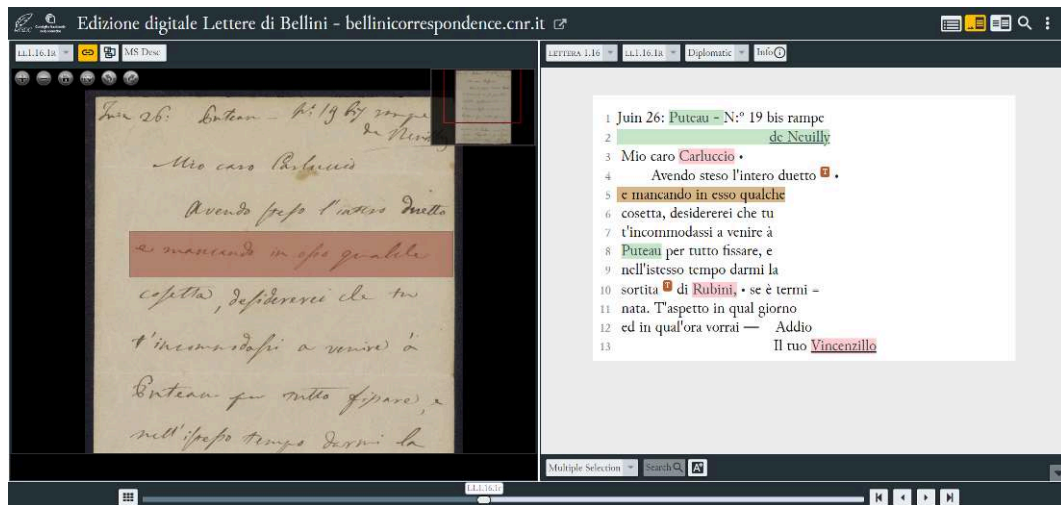 Edizione digitale Lettere di Bellini - bellinicorrespondence.cnr.it
LL1.16.1R
MS Desc
LETTERA 1.16
LL1.16.1R
Diplomatic
Info
Juin 26: Puteau - N:° 19 bis rampe
de Neuilly
Mio caro Carluccio
Avendo steso l'intero duetto
e mancando in esso qualche
cosetta, desidererei che tu
t'incommodassi a venire à
Puteau per tutto fissare, e
nell'istesso tempo darmi la
1 Juin 26: Puteau - N:° 19 bis rampe
2 de Neuilly
3 Mio caro Carluccio •
4 Avendo steso l'intero duetto T •
5 e mancando in esso qualche
6 cosetta, desidererei che tu
7 t'incommodassi a venire à
8 Puteau per tutto fissare, e
9 nell'istesso tempo darmi la
10 sortita T di Rubini, • se è termi -
11 nata. T'aspetto in qual giorno
12 ed in qual'ora vorrai — Addio
13 Il tuo Vincenzillo
Multiple Selection
Search
LL1.16.1r